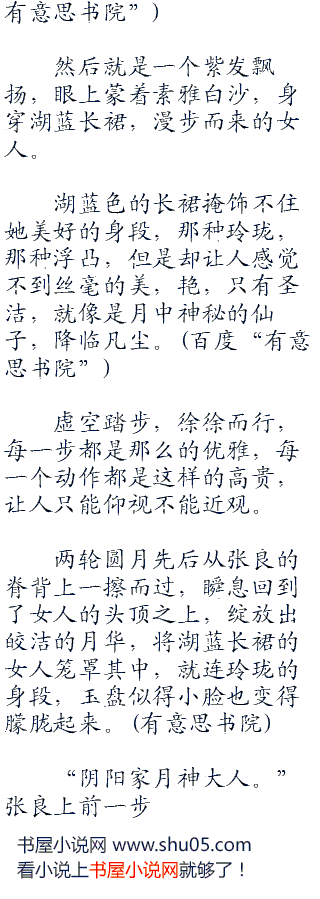 有意思书院”)
然后就是一个紫发飘
扬，眼上蒙着素雅白沙，身
穿湖蓝长裙，漫步而来的女
人。
湖蓝色的长裙掩饰不住
她美好的身段，那种玲珑，
那种浮凸，但是却让人感觉
不到丝毫的美，艳，只有圣
洁，就像是月中神秘的仙
子，降临凡尘。(百度“有意
思书院”)
虚空踏步，徐徐而行，
每一步都是那么的优雅，每
一个动作都是这样的高贵，
让人只能仰视不能近观。
两轮圆月先后从张良的
脊背上一擦而过，瞬息回到
了女人的头顶之上，绽放出
皎洁的月华，将湖蓝长裙的
女人笼罩其中，就连玲珑的
身段，玉盘似得小脸也变得
朦胧起来。(有意思书院)
“阴阳家月神大人。”
张良上前一步
书屋小说网 www.shu05.com
看小说上书屋小说网就够了！